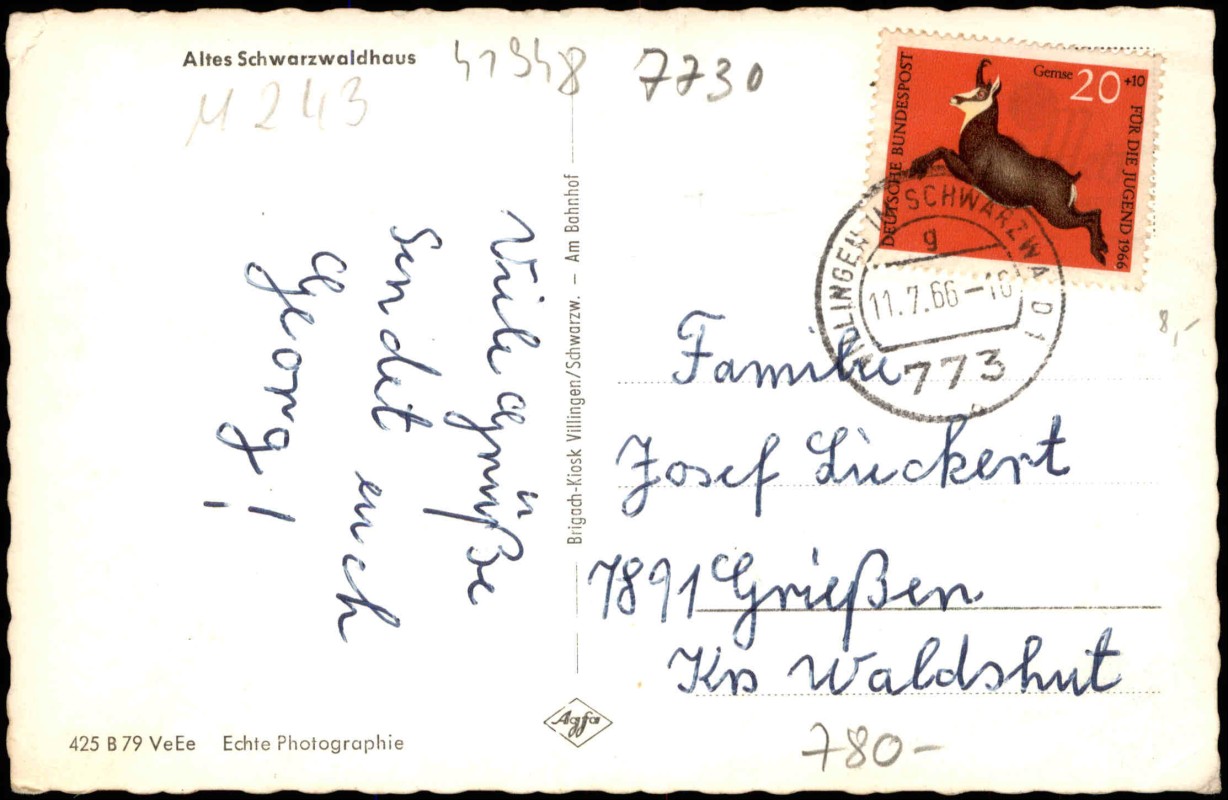 Altes Schwarzwaldhaus
41948
7730
M 243
Viele Grüße
sendet euch
Georg!
Brigach-Kiosk Villingen/Schwarzw. – Am Bahnhof
DEUTSCHE BUNDESPOST
Gemse 20 +10
FÜR DIE JUGEND 1966
VILLINGEN IM SCHWARZWALD 1
g
11.7.66-10
773
8,-
Familie
Josef Lückert
7891 Grießen
Krs Waldshut
Agfa
425 B 79 VeEe Echte Photographie
780-